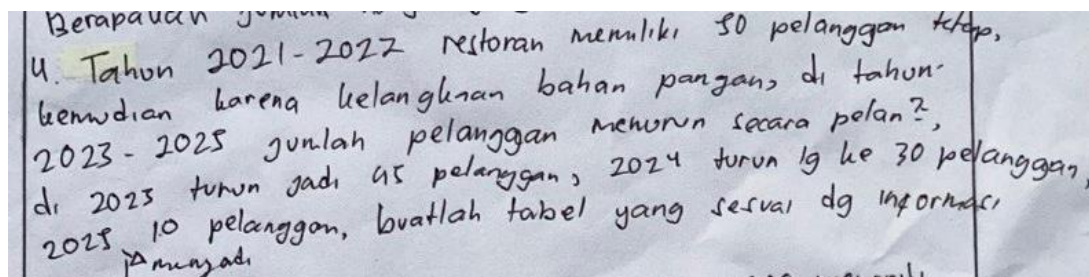 Berapakah jumlah
4. Tahun 2021-2022 restoran memiliki 50 pelanggan tetap,
kemudian karena kelangkaan bahan pangan, di tahun
2023-2025 jumlah pelanggan menurun secara pelan2,
di 2023 turun jadi 45 pelanggan, 2024 turun lg ke 30 pelanggan,
2025 10 pelanggan, buatlah tabel yang sesuai dg informasi
menjadi